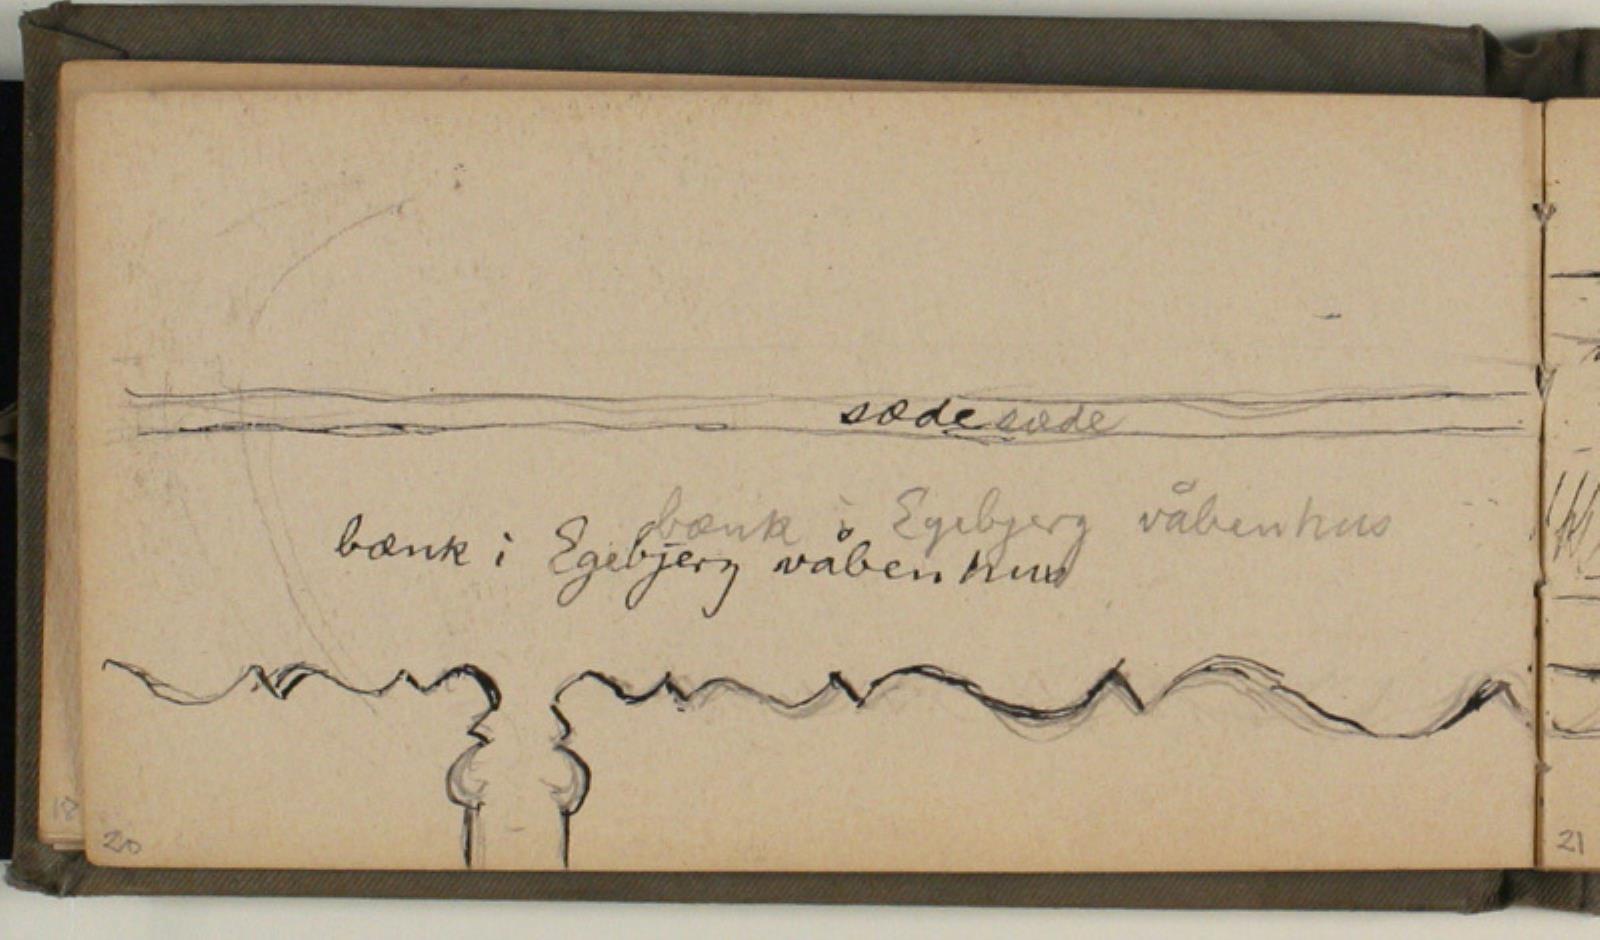 sæde sæde
bænk i Egebjerg våbenhus
bænk i Egebjerg våbenhus
18
20
21